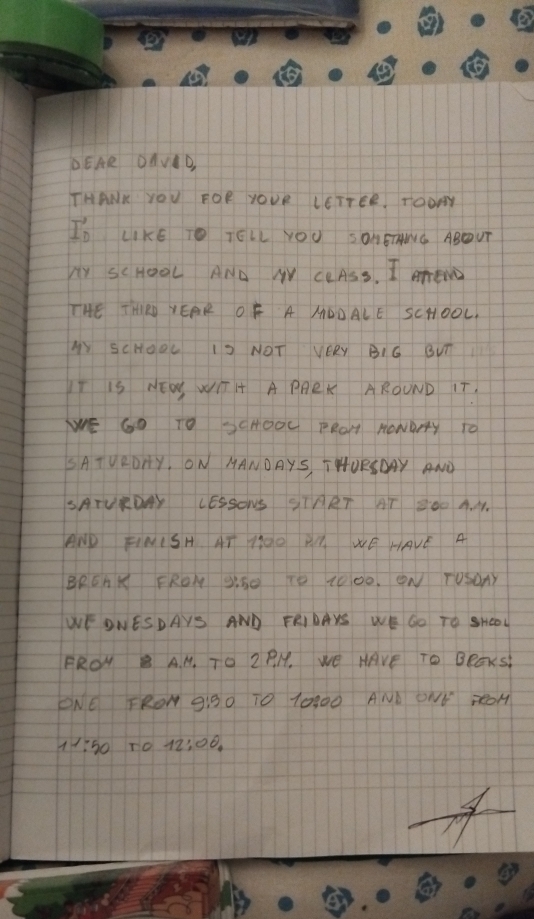 DEAR DAVID,
THANK YOU FOR YOUR LETTER. TODAY
I'D LIKE TO TELL YOU SOMETHING ABOUT
MY SCHOOL AND MY CLASS. I ATTEND
THE THIRD YEAR OF A MIDDALE SCHOOL.
MY SCHOOL IS NOT VERY BIG BUT
IT IS NEW, WITH A PARK AROUND IT.
WE GO TO SCHOOL FROM MONDAY TO
SATURDAY. ON MANDAYS, THURSDAY AND
SATURDAY LESSONS START AT 8:00 A.M.
AND FINISH AT 1:00 P.M. WE HAVE A
BREAK FROM 9:50 TO 10:00. ON TUSDAY
WEDNESDAYS AND FRIDAYS WE GO TO SHOOL
FROM 8 A.M. TO 2 P.M. WE HAVE TO BREKS:
ONE FROM 9:50 TO 10:00 AND ONE FROM
11:50 TO 12:00.